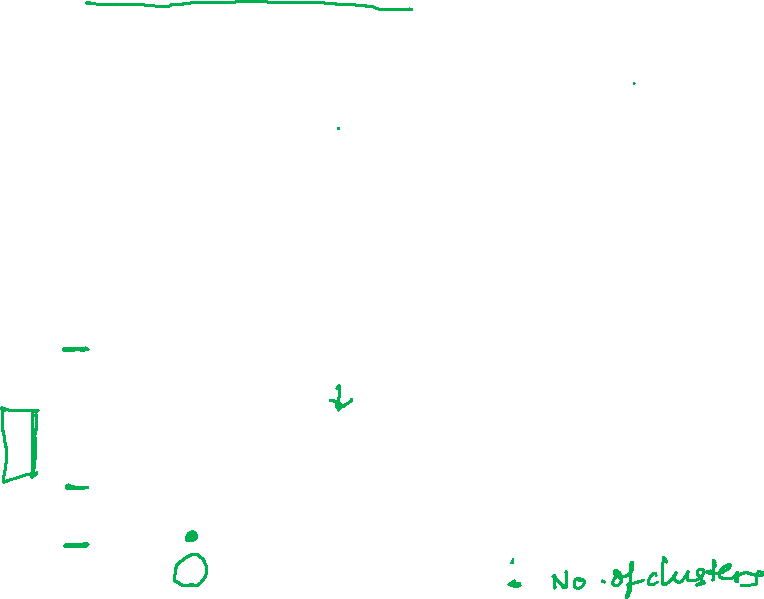 No. of clusters